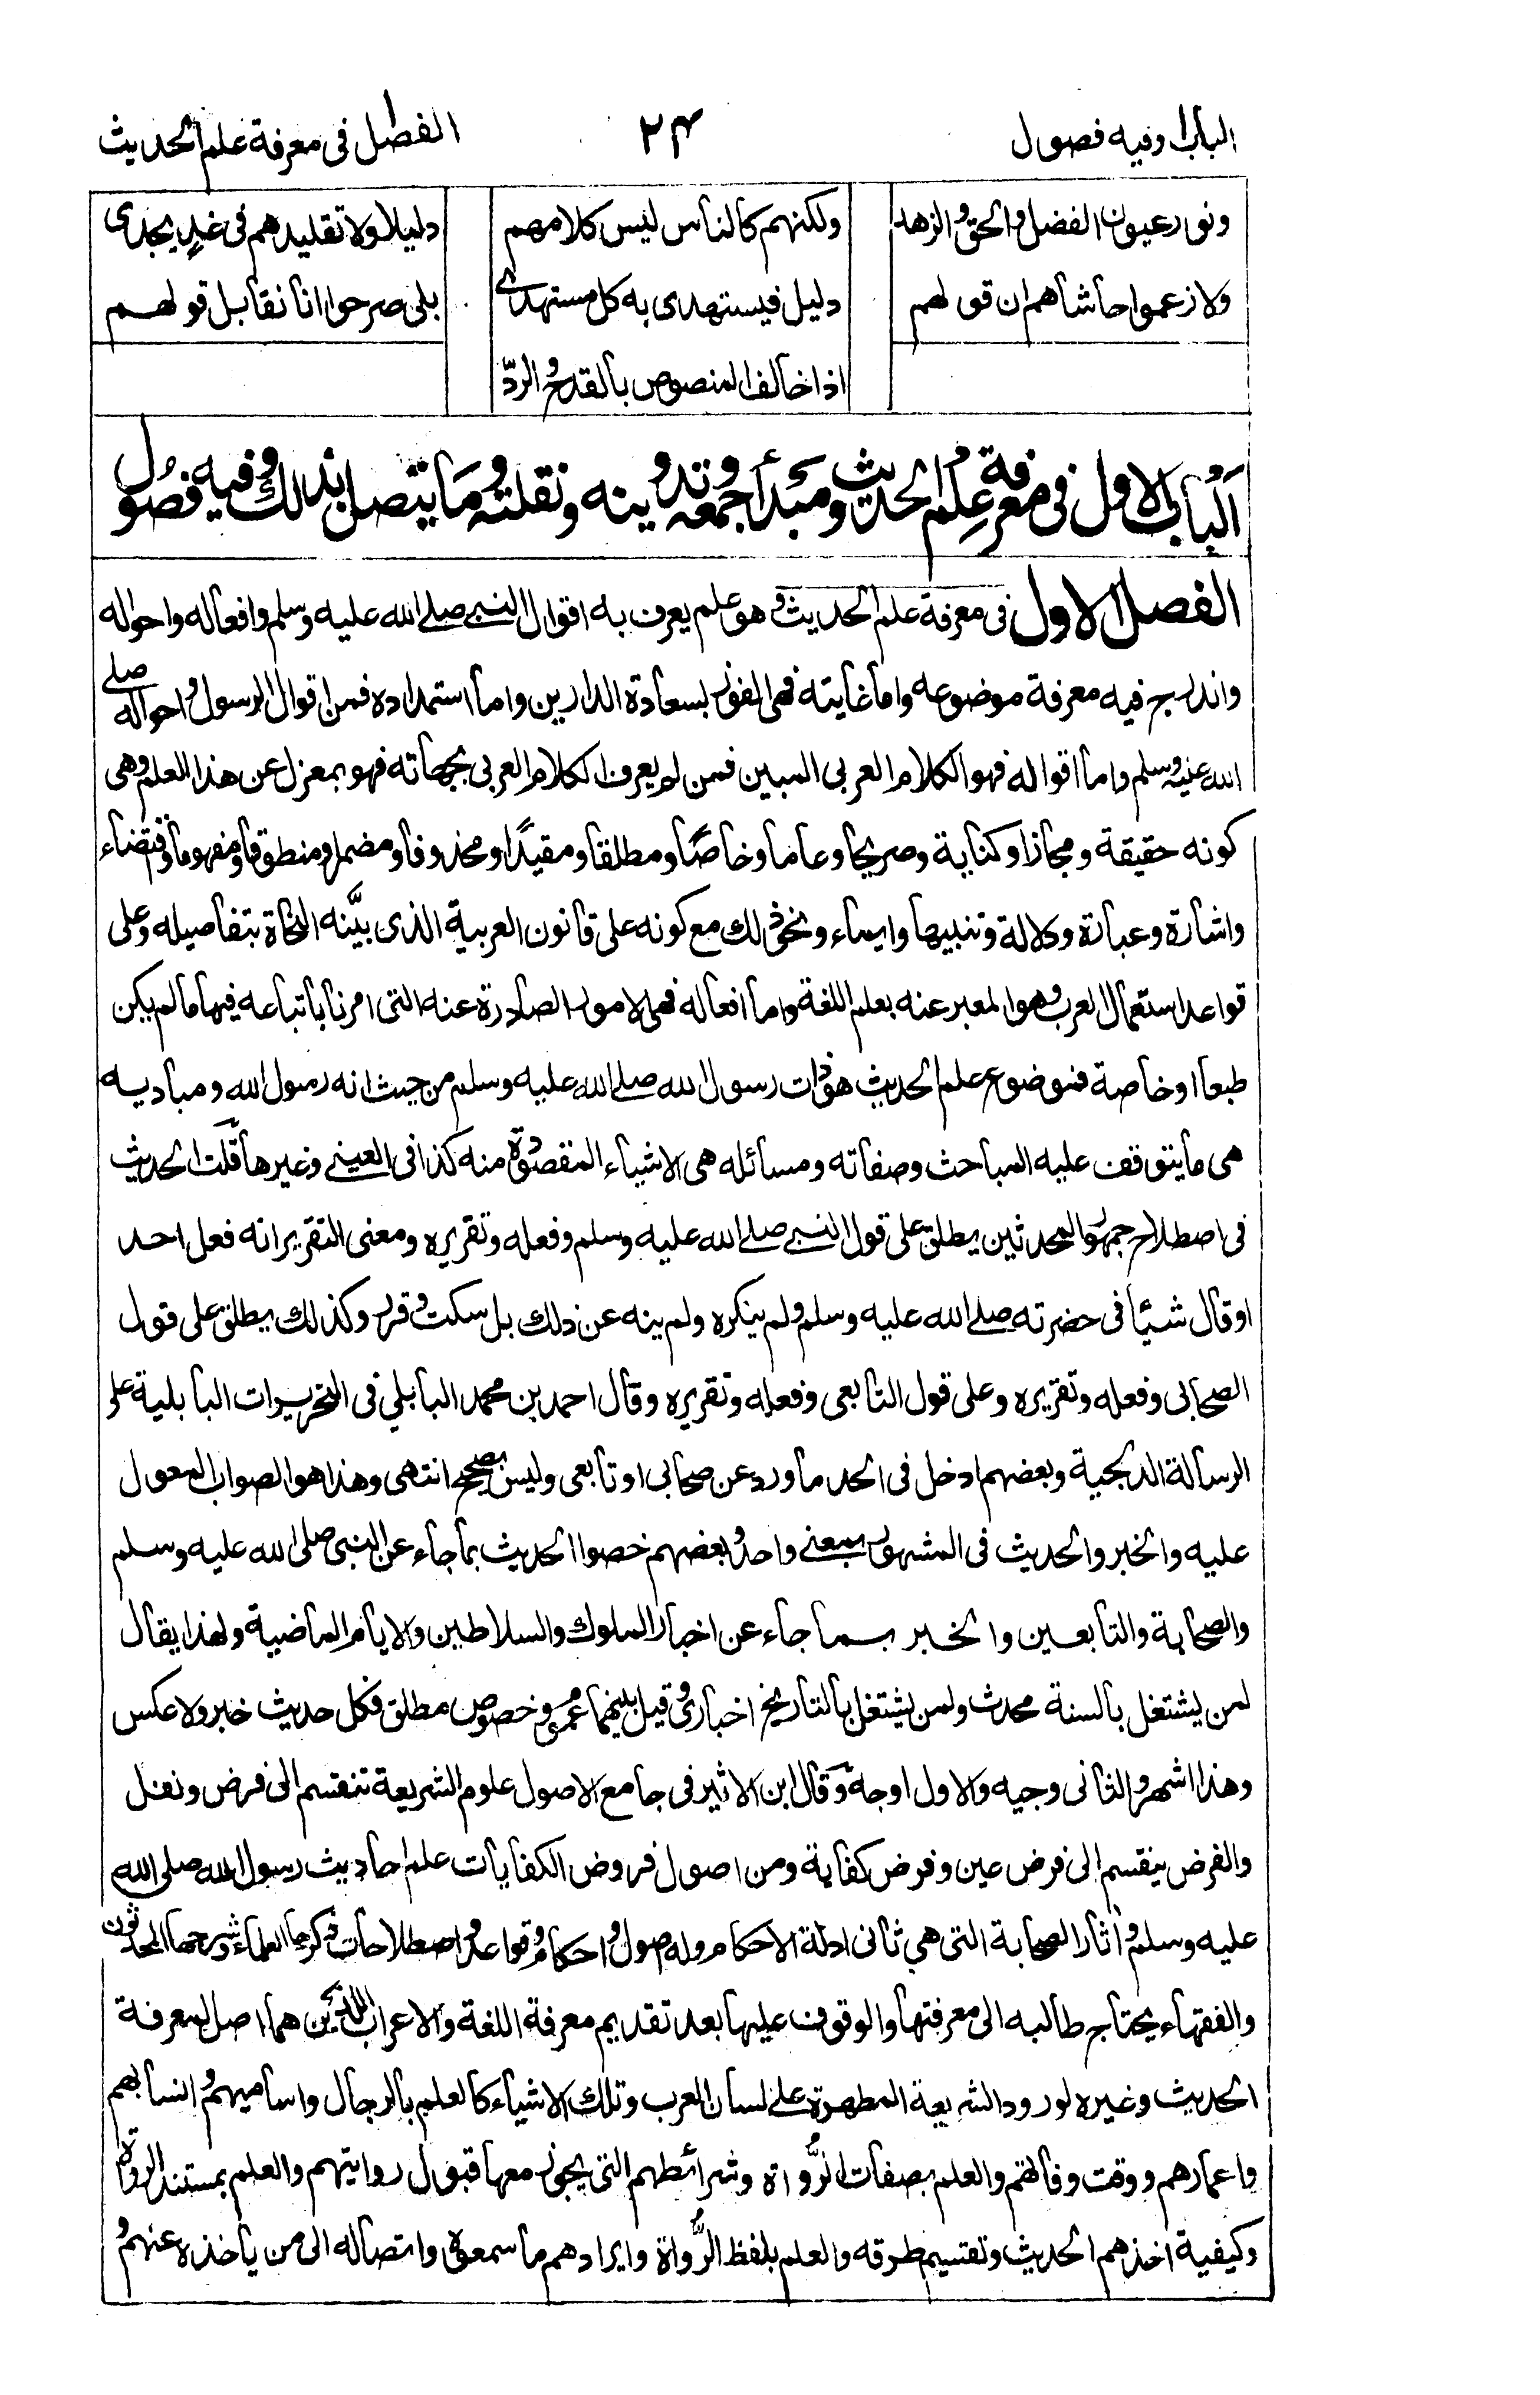 الباب١ وفيه فصول
٢٤
الفصل١ في معرفة علم الحديث
ونور عيون الفضل والحق والزهد
ولكنهم كالناس ليس كلامهم
دليلا ولا تقليدهم في غد يجدي
ولا زعموا حاشاهم ان قولهم
دليل فيستهدى به كل مستهدي
بلى صرحوا انا نقابل قولهم
اذا خالف المنصوص بالقدح والردّ
الباب الاول في معرفة علم الحديث ومبدأ جمعه وتدوينه ونقلته وما يتصل بذلك وفيه فصول
الفصل الاول في معرفة علم الحديث وهو علم يعرف به اقوال النبي صلے الله عليه وسلم وافعاله واحواله
واندرج فيه معرفة موضوعه واما غايته فهى الفوز بسعادة الدارين واما استمداده فمن اقوال الرسول واحواله صلے
الله عليه وسلم واما اقواله فهو الكلام العربي المبين فمن لم يعرف الكلام العربي بجهاته فهو بمعزل عن هذا العلم وهى
كونه حقيقة ومجازا وكناية وصريحا وعاما وخاصًا ومطلقا ومقيدًا ومحذوفا ومضمرا ومنطوقا ومفهوما واقتضاء
واشارة وعبارة ودلالة وتنبيها وايماء ونحو ذلك مع كونه على قانون العربية الذى بيَّنه النحاة بتفاصيله وعلى
قواعد استعمال العرب وهو المعبر عنه بعلم اللغة واما افعاله فهى الامور الصادرة عنه التى امرنا باتباعه فيها ما لم يكن
طبعا او خاصة فموضوع علم الحديث هو ذات رسول الله صلے الله عليه وسلم من حيث انه رسول الله ومباديه
هى ما يتوقف عليه المباحث وصفاته ومسائله هى الاشياء المقصودة منه كذا فى العينے وغيرها قلت الحديث
فى اصطلاح جمهور المحدثين يطلق على قول النبي صلے الله عليه وسلم وفعله وتقريره ومعنى التقرير انه فعل احد
او قال شيأ فى حضرته صلے الله عليه وسلم ولم ينكره ولم ينه عن ذلك بل سكت وقرر وكذلك يطلق على قول
الصحابى وفعله وتقريره وعلى قول التابعى وفعله وتقريره وقال احمد بن محمد البابلي فى التحريرات البابلية على
الرسالة الدبجية وبعضهم ادخل فى الحد ما ورد عن صحابى او تابعى وليس بصحيح انتهى وهذا هو الصواب المعول
عليه والخبر والحديث فى المشهور بمعنے واحد وبعضهم خصوا الحديث بما جاء عن النبى صلى الله عليه وسلم
والصحابة والتابعين والخبر بما جاء عن اخبار الملوك والسلاطين والايام الماضية ولهذا يقال
لمن يشتغل بالسنة محدث ولمن يشتغل بالتاريخ اخبارى وقيل بينهما عموم وخصوص مطلق فكل حديث خبر ولا عكس
وهذا اشهر والثانى وجيه والاول اوجه وقال ابن الاثير فى جامع الاصول علوم الشريعة تنقسم الى فرض ونفل
والفرض ينقسم الى فرض عين وفرض كفاية ومن اصول فروض الكفايات علم احاديث رسول الله صلى الله
عليه وسلم وآثار الصحابة التى هي ثانى ادلة الاحكام وله اصول واحكام وقواعد واصطلاحات ذكرها العلماء وشرحها المحدثون
والفقهاء يحتاج طالبه الى معرفتها والوقوف عليها بعد تقديم معرفة اللغة والاعراب اللذين هما اصل لمعرفة
الحديث وغيره لورود الشريعة المطهرة على لسان العرب وتلك الاشياء كالعلم بالرجال واساميهم وانسابهم
واعمارهم ووقت وفاتهم والعلم بصفات الرُّواة وشرائطهم التى يجوز معها قبول روايتهم والعلم بمستند الرواة
وكيفية اخذهم الحديث وتقسيم طرقه والعلم بلفظ الرُّواة وايرادهم ما سمعوه واتصاله الى من يأخذه عنهم و